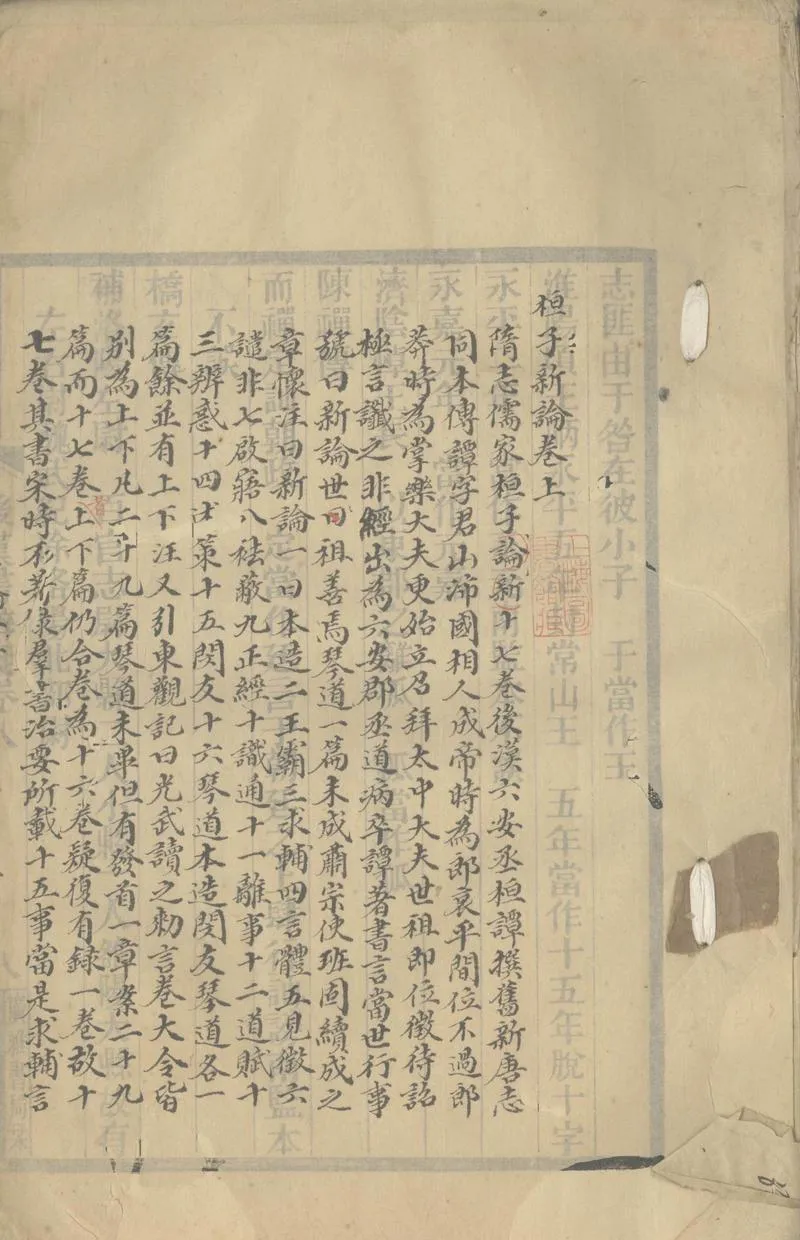 桓子新論卷上
隋志儒家桓子論新十七卷後漢六安丞桓譚撰舊新唐志
同本傳譚字君山沛國相人成帝時為郎哀平間位不過郎
莽時為掌樂大夫更始立召拜太中大夫世祖即位徵待詔
極言讖之非經出為六安郡丞道病卒譚著書言當世行事
號曰新論世曰祖善焉琴道一篇未成肅宗使班固續成之
章懷注曰新論一曰本造二王霸三求輔四言體五見徵六
譴非七啟寤八祛蔽九正經十識通十一離事十二道賦十
三辨惑十四述策十五閔友十六琴道本造閔友琴道各一
篇餘並有上下注又引東觀記曰光武讀之勑言卷大令皆
別為上下凡二十九篇琴道未畢但有發首一章案二十九
篇而十七卷上下篇仍合卷為十六卷疑復有録一卷故十
七卷其書宋時不著録羣書治要所載十五事當是求輔言
志匪由于咎在彼小子 于當作王
常山王 五年當作十五年脫十字